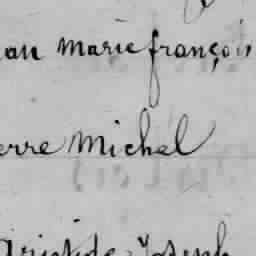 an marie françois
erre Michel
Aristide Joseph